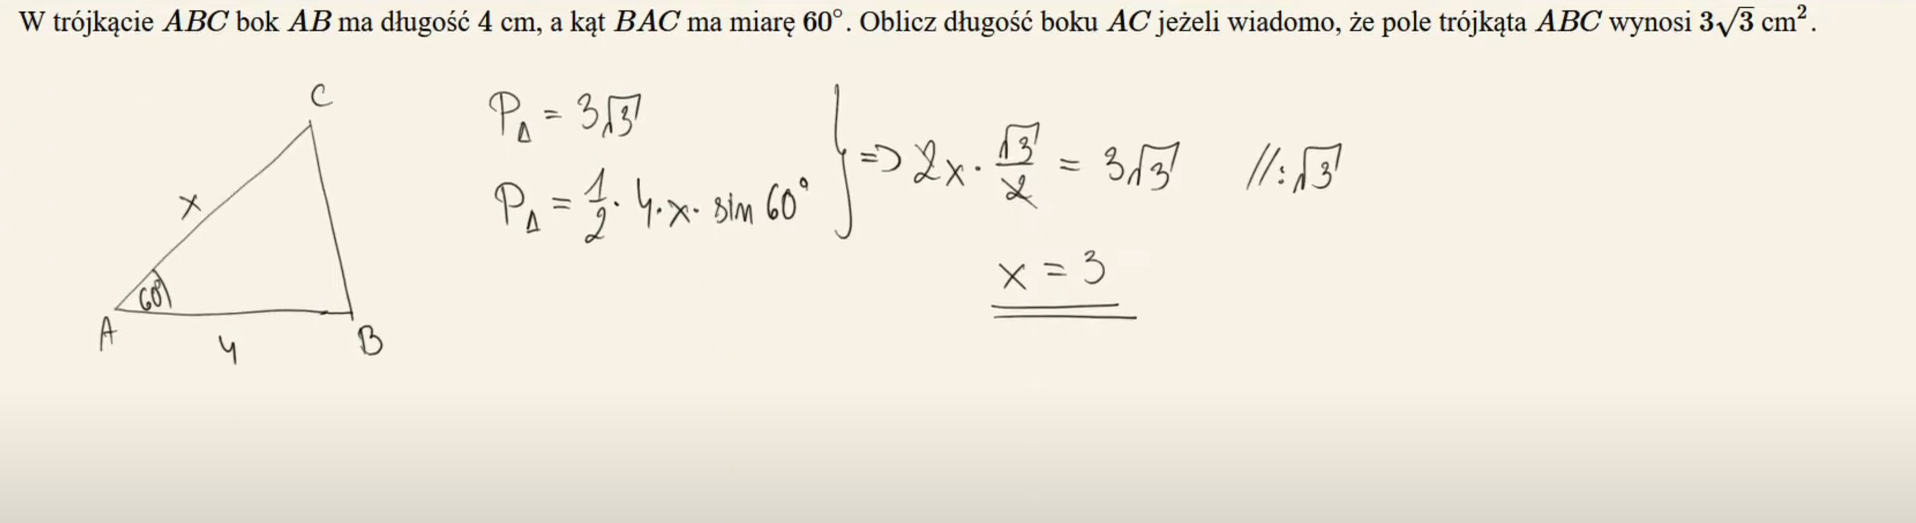 W trójkącie ABC bok AB ma długość 4 cm, a kąt BAC ma miarę 60°. Oblicz długość boku AC jeżeli wiadomo, że pole trójkąta ABC wynosi 3√3 cm².
C
x
60°
A
4
B
P△ = 3√3
P△ = 1/2 · 4 · x · sin 60°
} => 2x · √3/2 = 3√3 //:√3
x = 3